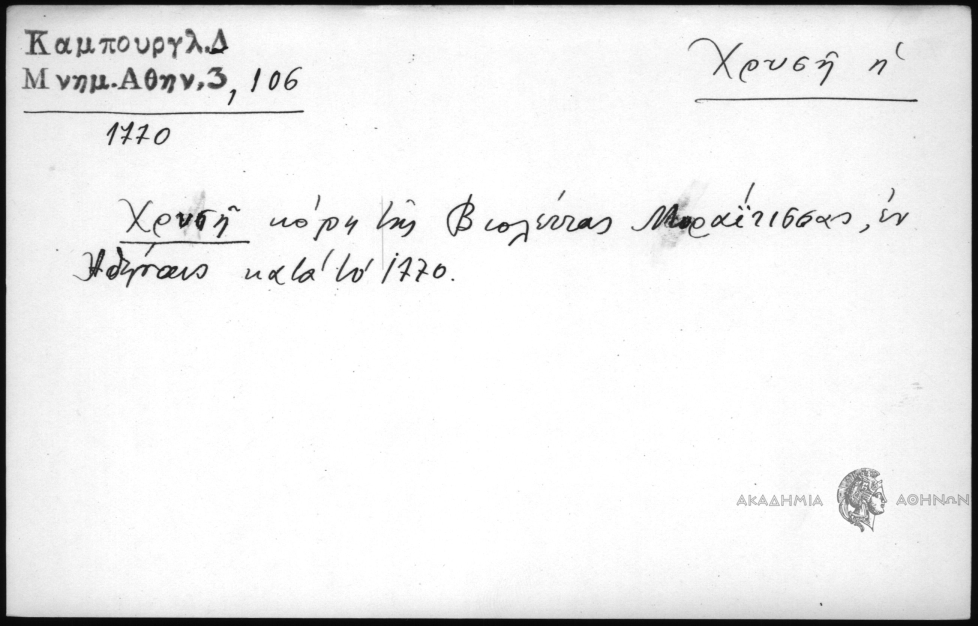 Καμπουργλ.Δ
Μνημ.Αθην,3, 106
1770
Χρυσῆ ἡ
Χρυσῆ κόρη τῆς Βιολέττας Μοραΐτισσας, ἐν
Ἀθήναις κατὰ τὸ 1770.
ΑΚΑΔΗΜΙΑ ΑΘΗΝΩΝ